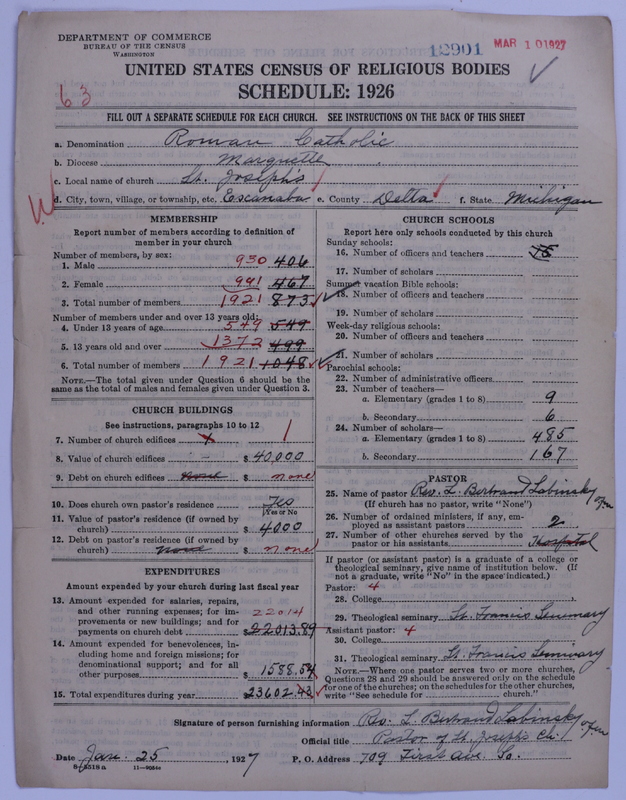 DEPARTMENT OF COMMERCE
BUREAU OF THE CENSUS
WASHINGTON
12901
MAR 10 1927
63
UNITED STATES CENSUS OF RELIGIOUS BODIES
SCHEDULE: 1926
FILL OUT A SEPARATE SCHEDULE FOR EACH CHURCH. SEE INSTRUCTIONS ON THE BACK OF THIS SHEET
a. Denomination Roman Catholic
b. Diocese Marquette
c. Local name of church St. Joseph's
d. City, town, village, or township, etc. Escanaba e. County Delta f. State Michigan
MEMBERSHIP
Report number of members according to definition of
member in your church
Number of members, by sex:
1. Male 930 406
2. Female 991 467
3. Total number of members 1921 873
Number of members under and over 13 years old:
4. Under 13 years of age 549 549
5. 13 years old and over 1372 499
6. Total number of members 1921 1048
NOTE.—The total given under Question 6 should be the
same as the total of males and females given under Question 3.
CHURCH BUILDINGS
See instructions, paragraphs 10 to 12
7. Number of church edifices 1
8. Value of church edifices $ 40,000
9. Debt on church edifices none $ none
10. Does church own pastor's residence Yes
(Yes or No)
11. Value of pastor's residence (if owned by
church) $ 4000
12. Debt on pastor's residence (if owned by
church) none $ none
EXPENDITURES
Amount expended by your church during last fiscal year
13. Amount expended for salaries, repairs,
and other running expenses; for im-
provements or new buildings; and for
payments on church debt 22014 $ 22013.89
14. Amount expended for benevolences, in-
cluding home and foreign missions; for
denominational support; and for all
other purposes $ 1588.54
15. Total expenditures during year $ 23602.43
CHURCH SCHOOLS
Report here only schools conducted by this church
Sunday schools:
16. Number of officers and teachers 15
17. Number of scholars
Summer vacation Bible schools:
18. Number of officers and teachers
19. Number of scholars
Week-day religious schools:
20. Number of officers and teachers
21. Number of scholars
Parochial schools:
22. Number of administrative officers
23. Number of teachers—
a. Elementary (grades 1 to 8) 9
b. Secondary 6
24. Number of scholars—
a. Elementary (grades 1 to 8) 485
b. Secondary 167
PASTOR
25. Name of pastor Rev. L. Bertrand Labinsky ofm
(If church has no pastor, write "None")
26. Number of ordained ministers, if any, em-
ployed as assistant pastors 2
27. Number of other churches served by the
pastor or his assistants Hospital
If pastor (or assistant pastor) is a graduate of a college or
theological seminary, give name of institution below. (If
not a graduate, write "No" in the space indicated.)
Pastor: 4
28. College
29. Theological seminary St. Francis Seminary
Assistant pastor: 4
30. College
31. Theological seminary St. Francis Seminary
NOTE.—Where one pastor serves two or more churches,
Questions 28 and 29 should be answered only on the schedule
for one of the churches; on the schedules for the other churches,
write "See schedule for church."
Signature of person furnishing information Rev. L. Bertrand Labinsky ofm
Official title Pastor of St. Joseph's Ch.
Date Jan. 25, 1927 P. O. Address 709 First Ave. So.
8-5518a 11-9034